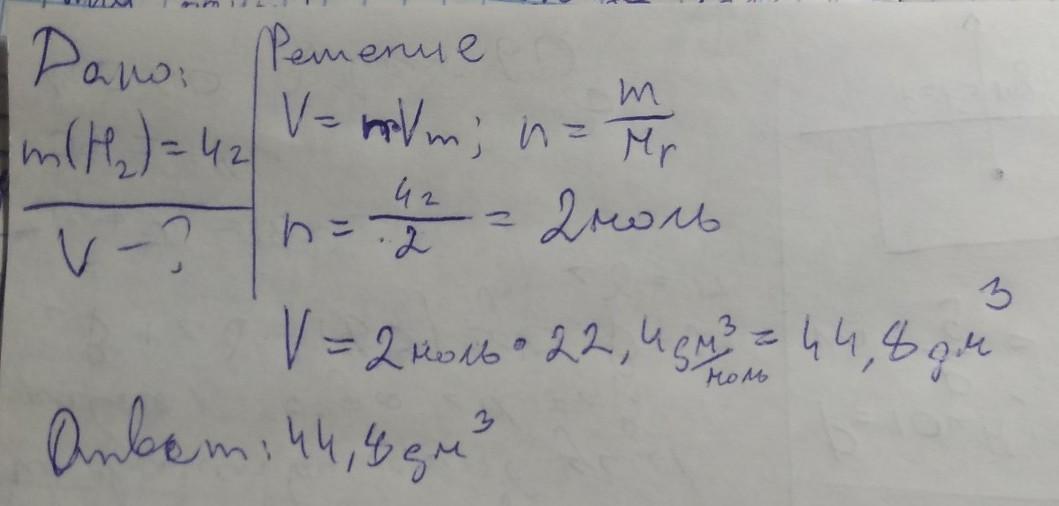 Дано:
m(H₂) = 4г
V - ?
Решение
V = nVm; n = m/Mr
n = 4г/2 = 2 моль
V = 2 моль • 22,4 дм³/моль = 44,8 дм³
Ответ: 44,8 дм³